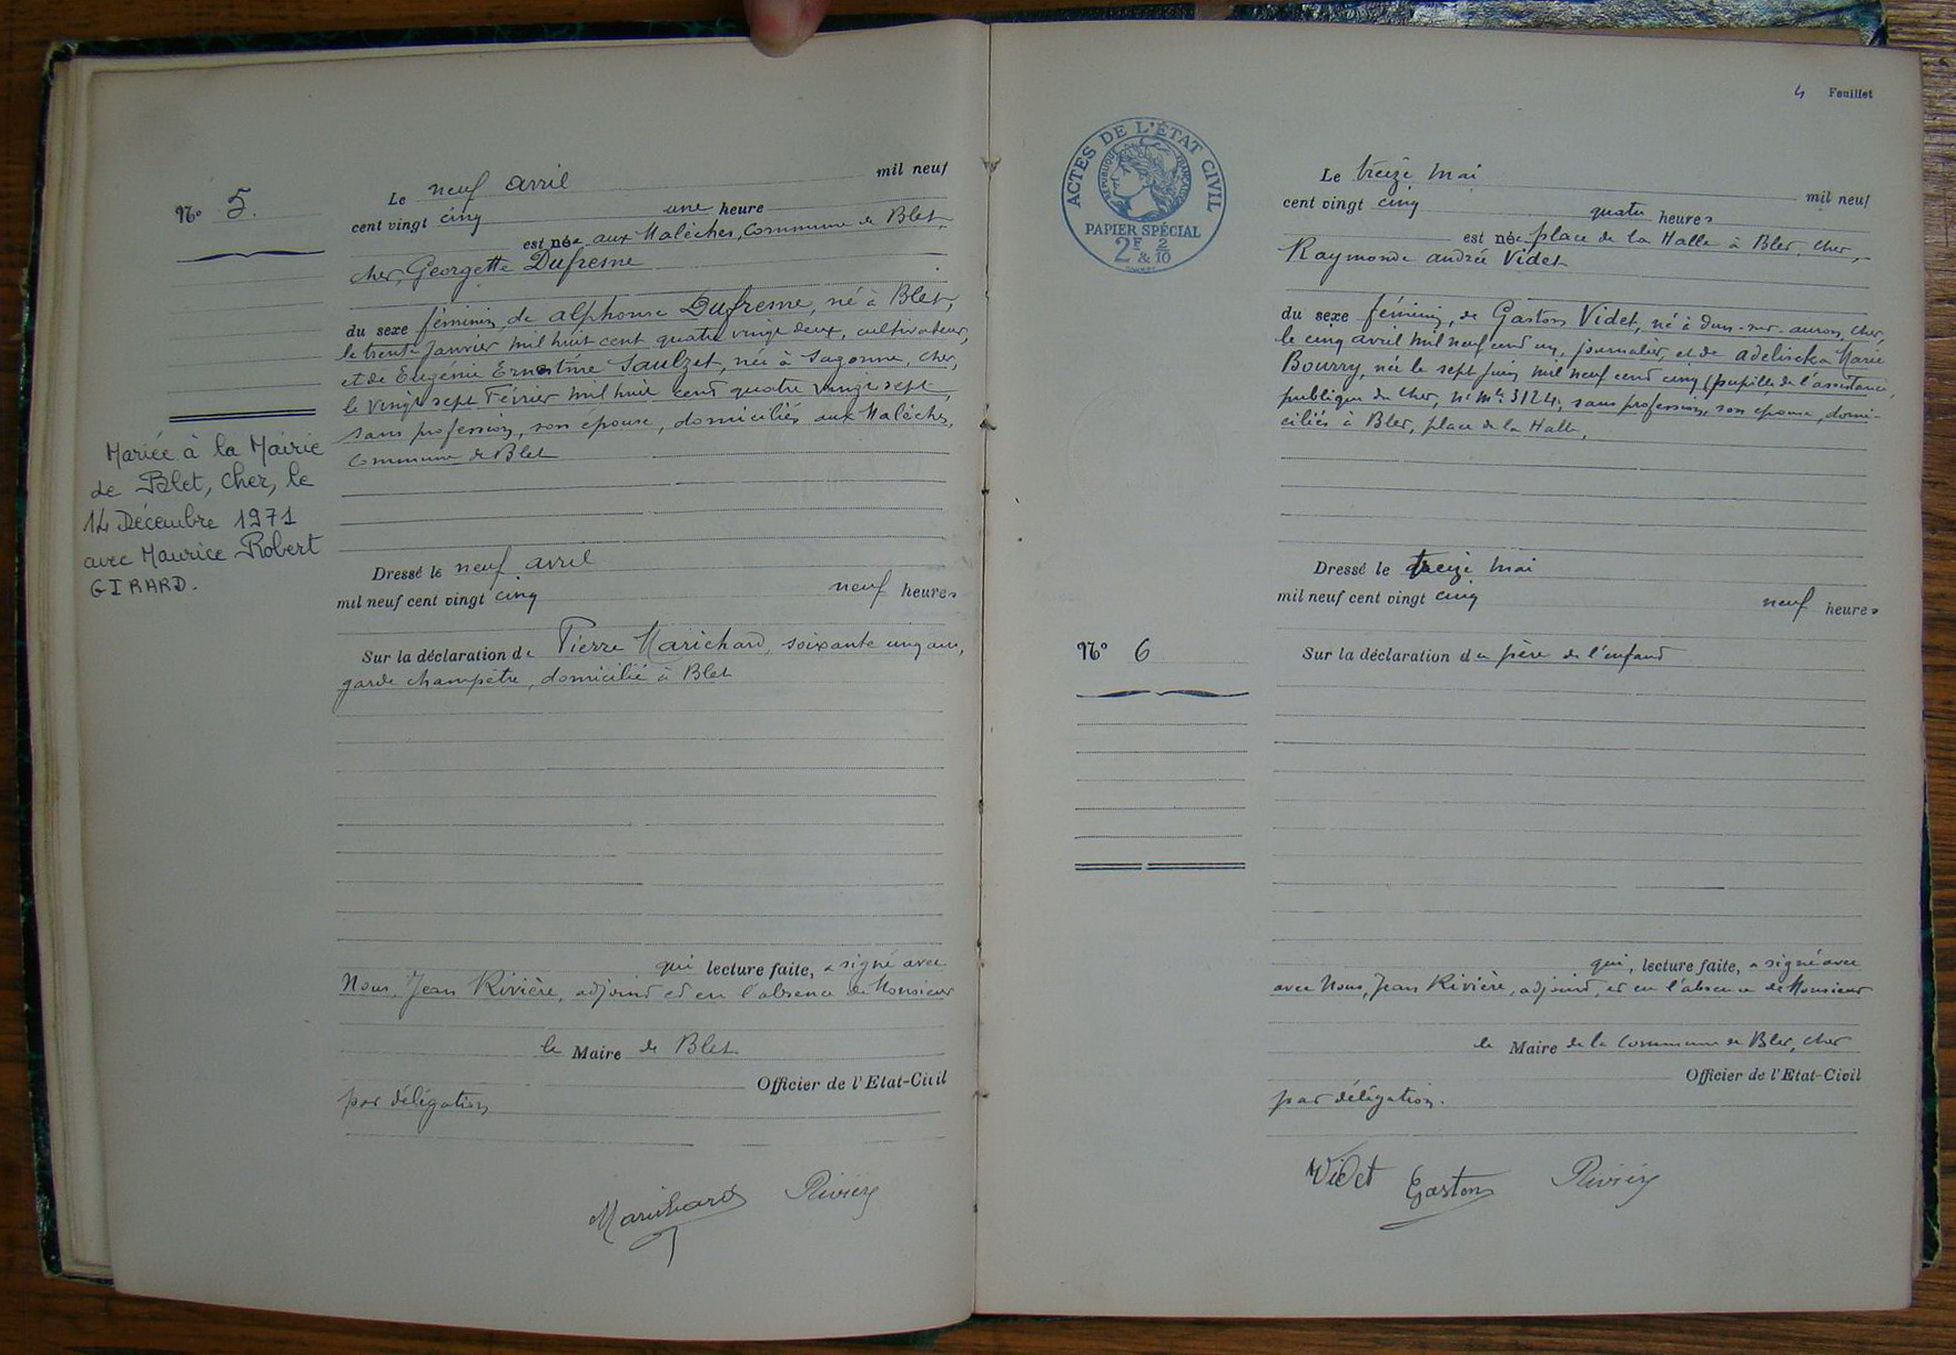 N° 5.
Mariée à la Mairie
de Blet, Cher, le
14 Décembre 1971
avec Maurice Robert
GIRARD.
Le neuf avril mil neuf
cent vingt cinq une heure
est née aux Malèches, Commune de Blet,
Cher, Georgette Dufresne
du sexe féminin, de Alphonse Dufresne, né à Blet,
le trente Janvier mil huit cent quatre vingt deux, cultivateur,
et de Eugénie Ernestine Saulzet, née à Sagonne, Cher,
le vingt sept Février mil huit cent quatre vingt sept,
sans profession, son épouse, domiciliés aux Malèches,
Commune de Blet
Dressé le neuf avril
mil neuf cent vingt cinq neuf heures
Sur la déclaration de Pierre Marichard, soixante un ans,
garde champêtre, domicilié à Blet
qui lecture faite, a signé avec
Nous, Jean Rivière, adjoint et en l'absence de Monsieur
le Maire de Blet
Officier de l'Etat-Civil
par délégation
Marichard Rivière
4 Feuillet
ACTES DE L'ÉTAT CIVIL
RÉPUBLIQUE FRANÇAISE
PAPIER SPÉCIAL
2F & 2/10
N° 6
Le treize mai mil neuf
cent vingt cinq quatre heures
est née place de la Halle à Blet, Cher,
Raymonde Andrée Videt
du sexe féminin, de Gaston Videt, né à Dun-sur-Auron, Cher,
le cinq avril mil neuf cent un, journalier, et de Adelisska Marie
Bourry, née le sept juin mil neuf cent cinq (pupille de l'assistance
publique du Cher, n° mle 3124, sans profession, son épouse, domi-
ciliés à Blet, place de la Halle,
Dressé le treize mai
mil neuf cent vingt cinq neuf heures
Sur la déclaration du père de l'enfant
qui, lecture faite, a signé avec
avec Nous, Jean Rivière, adjoint, et en l'absence de Monsieur
le Maire de la Commune de Blet, Cher
Officier de l'Etat-Civil
par délégation.
Videt Gaston Rivière